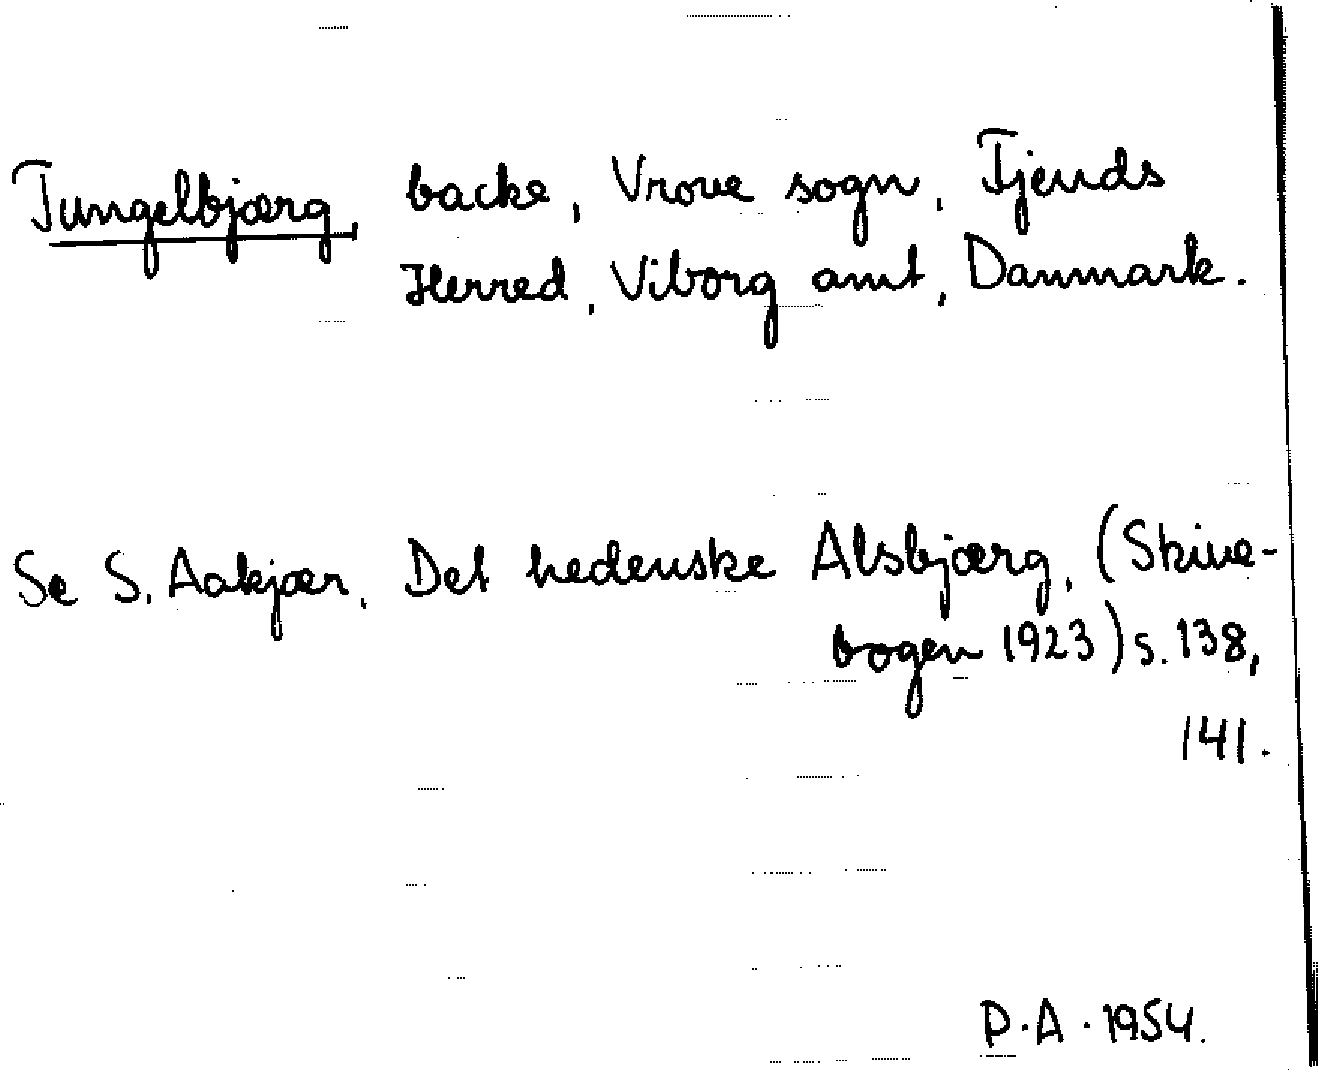 Tungelbjærg, backe, Vroue sogn, Fjends
Herred, Viborg amt, Danmark.
Se S. Aakjær, Det hedenske Alsbjærg, (Skive-
bogen 1923) s. 138,
141.
P.A. 1954.